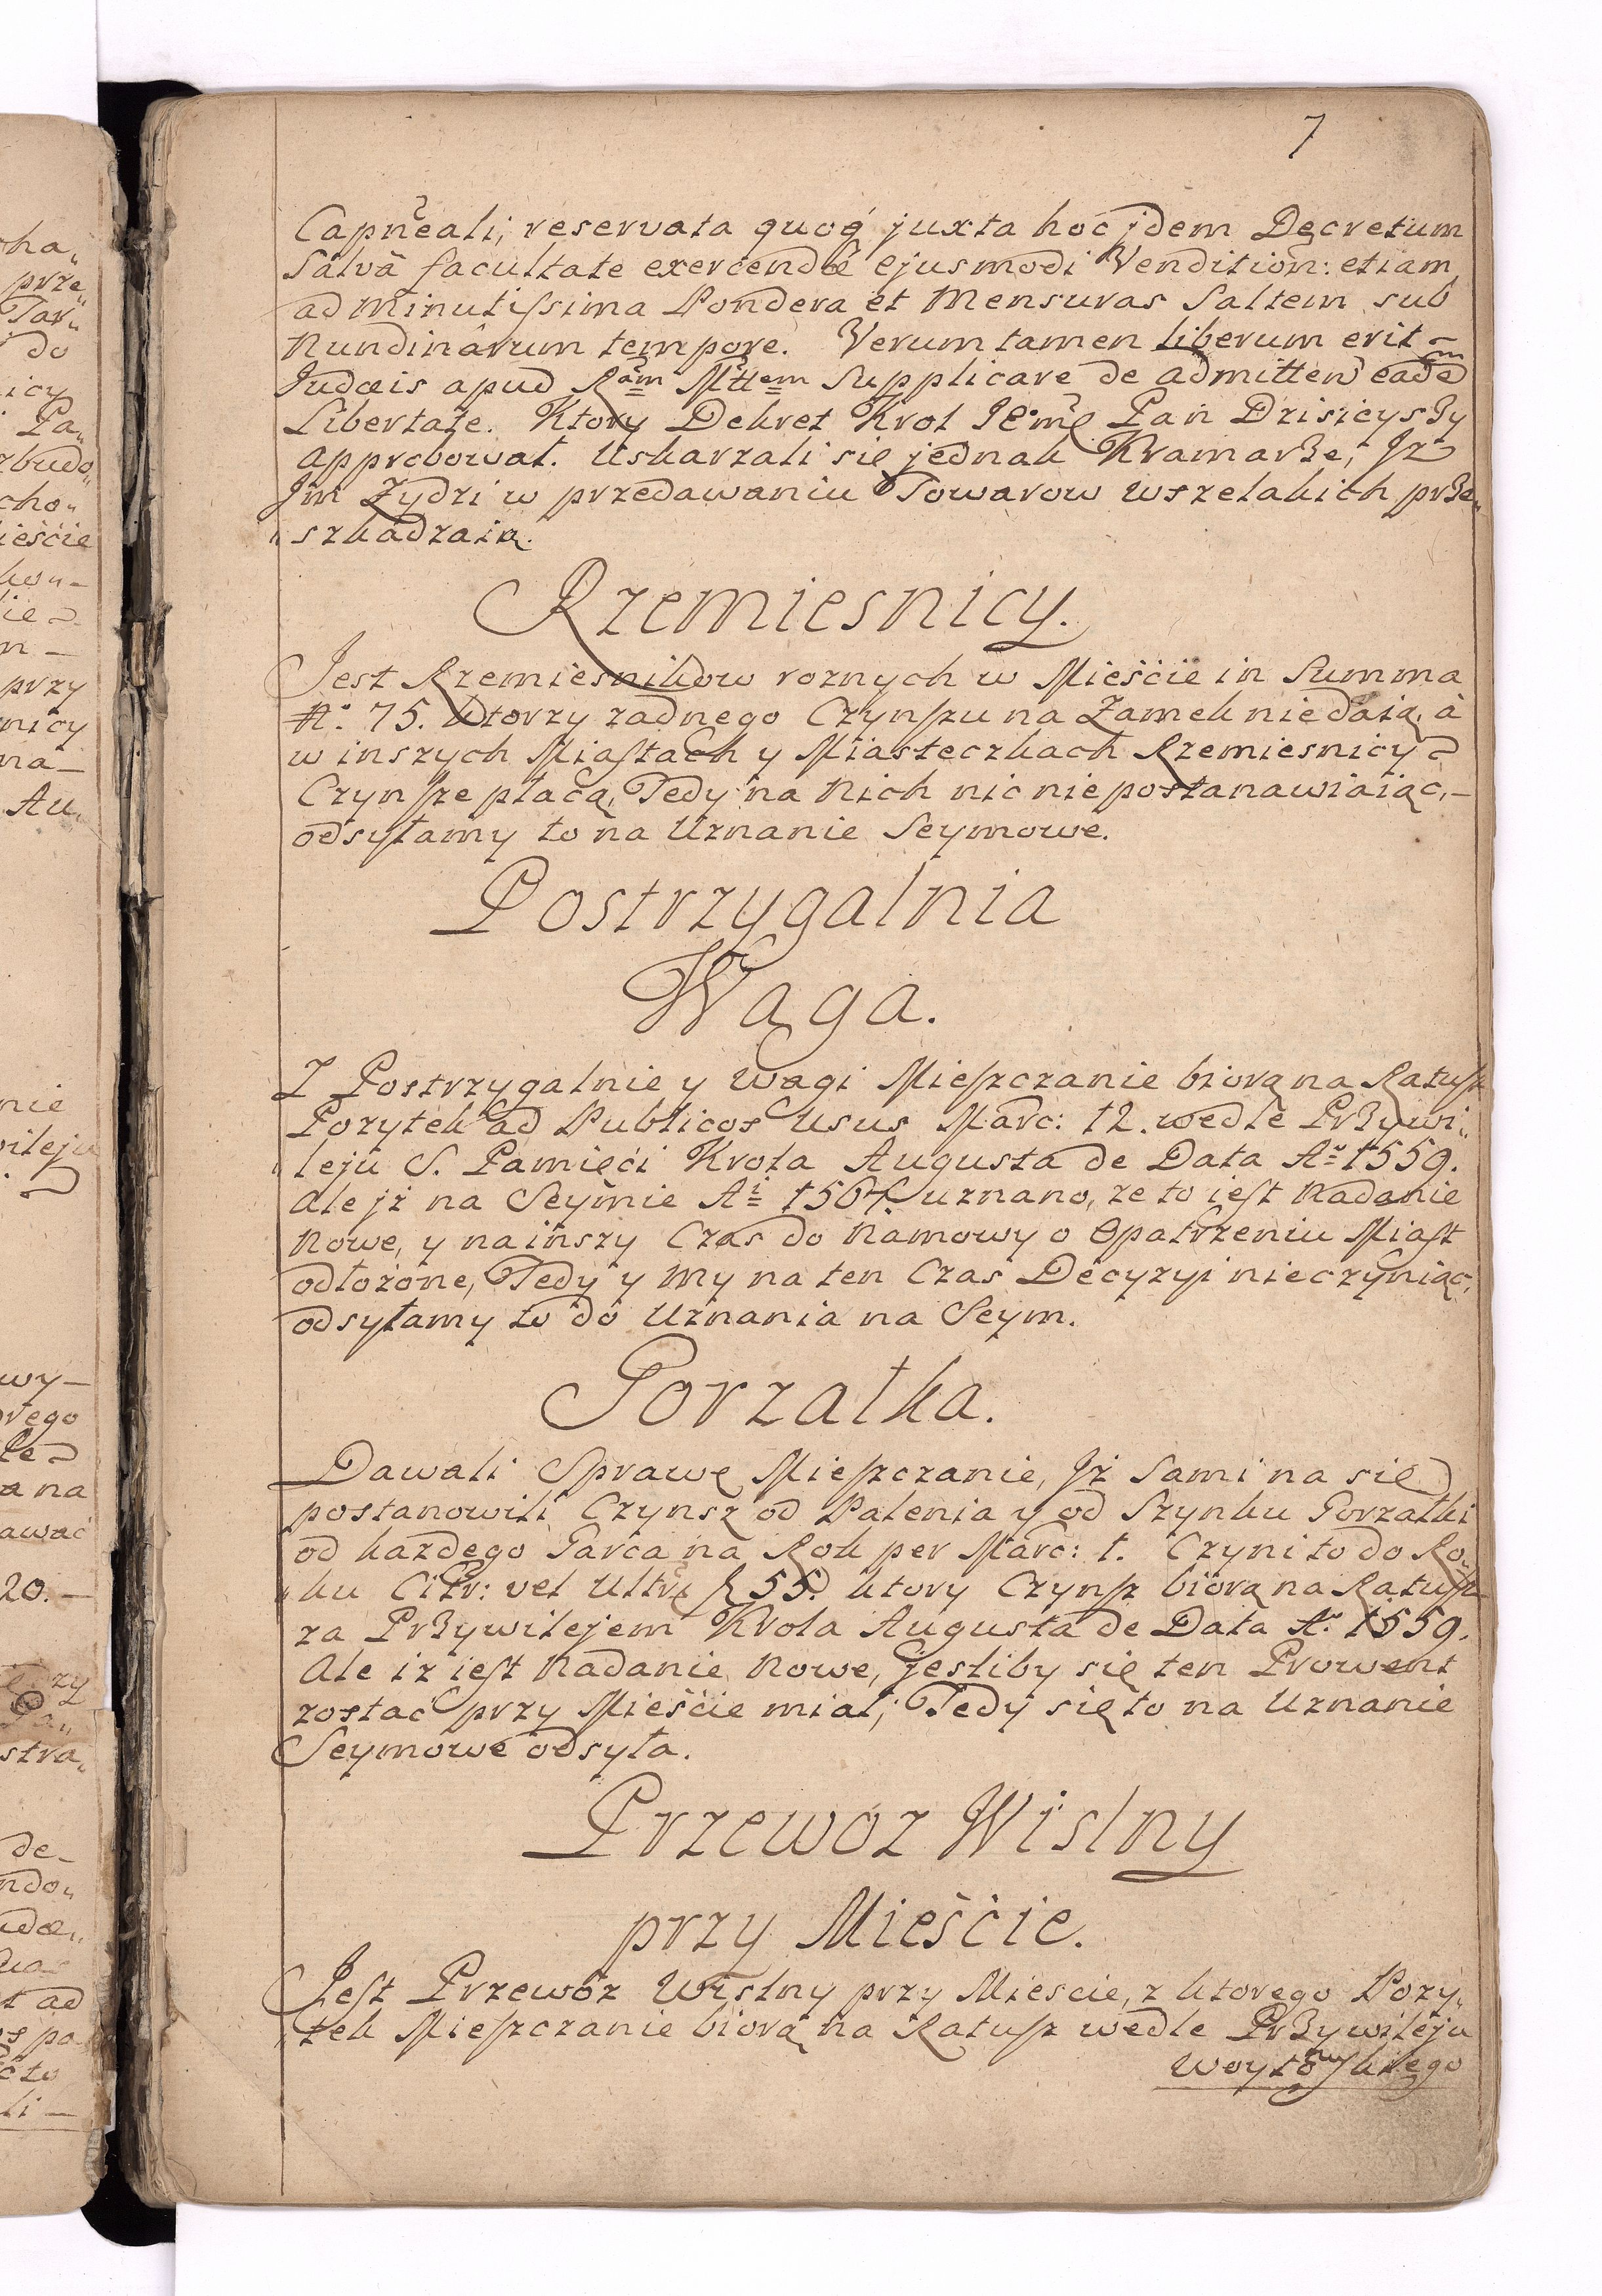 7
Capn̄eali, reservata quoq́ juxta hoc jdem Decretum
Salvâ facultate exercendæ ejusmodi Vendition: etiam
ad Minutiſsima Pondera et Mensuras Saltem sub
Nundinârum tempore. Verum tamen liberum erit –
Judæis apud Rãm Mttem Supplicare de admitteñ eadem
Libertate. Ktory Dekret Krol Jemc Pan Dzisieyszy
approbował. Uskarzali się jednak Kramarze, Jz
Jm Zydzi w przedawaniu Towarow wszelakich prze„
„szkadzaią.
Rzemiesnicy.
Jest Rzemiesnikow roznych w Mieście in Summa
No. 75. ktorzy zadnego Czynſzu na Zamek niedaią, à
w inszych Miaſtach y Miasteczkach Rzemiesnicy
Czynſze płacą, Tedy na Nich nic niepostanawiaiąc, –
odsyłamy to na Uznanie Seymowe.
Postrzygalnia
Waga.
Z Postrzygalnie y wagi Mieſzczanie biorą na Ratuſz
Pozytek ad Publicos Usus Marc: 12. wedle Przywi„
„leju S. Pamięći Krola Augusta de Data Ao 1559.
ale jż na Seymie Ai 1564. uznano, ze to ieſt Nadanie
Nowe, y na inszy Czas do Namowy o Opatrzeniu Miaſt
odłożone, Tedy y My na ten Czas Decyzyi nieczyniąc,
odsyłamy to do Uznania na Seym.
Gorzałka.
Dawali Sprawę Mieſzczanie, Jż Sami na się
postanowili Czynsz od Palenia y od Szynku Gorzałki
od kazdego Garca na Rok per Marc: 1. Czyni to do Ro„
„ku Citr: vel Ultra ƒ 55. ktory Czynſz biorą na Ratuſz
za Przywilejem Krola Augusta de Data Ao. 1559.
Ale iz ieſt Nadanie Nowe, jesliby się ten Prowent
zostać przy Mieście miał, Tedy się to na Uznanie
Seymowe odsyła.
Przewoz Wislny
przy Mieście.
Jeſt Przewóz Wislny przy Miescie, z ktorego Pozy„
„tek Mieſzczanie biorą na Ratuſz wedle Przywileju